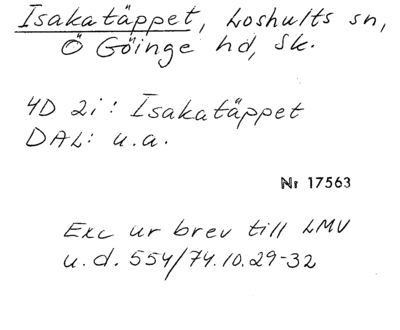 Isakatäppet, Loshults sn,
Ö Göinge hd, Sk.
4D 2i: Isakatäppet
DAL: u.a.
Nr 17563
Exc ur brev till LMV
u.d. 554/74.10.29-32